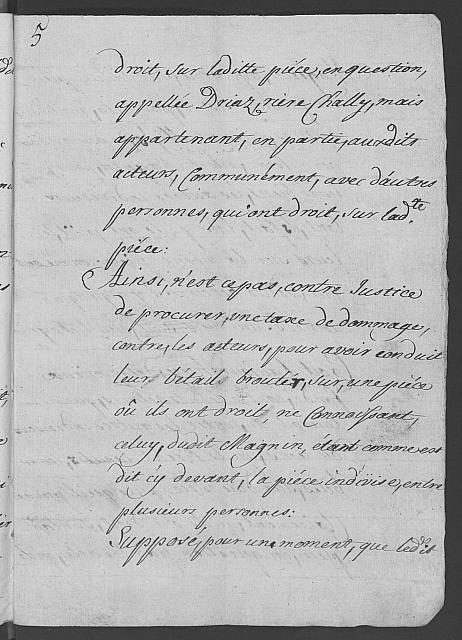 5
droit, sur laditte piéce, en question,
appellée Driaz, riére Chally, mais
appartenant, en partie, auxdits
acteurs, Communément, avec d'autres
personnes, qui ont droit, sur lad.te
piéce:
Ainsi, n'est ce pas, contre Justice
de procurer, une taxe de dommage,
contre, les acteurs, pour avoir conduit
leur bétails broutér, sur, une piéce
oû ils ont droit, ne Connoissant,
celuy, dudit Magnin, étant comme est
dit cÿ devant, la piéce indivise, entre
plusieurs personnes:
Supposé, pour un moment, que ledit